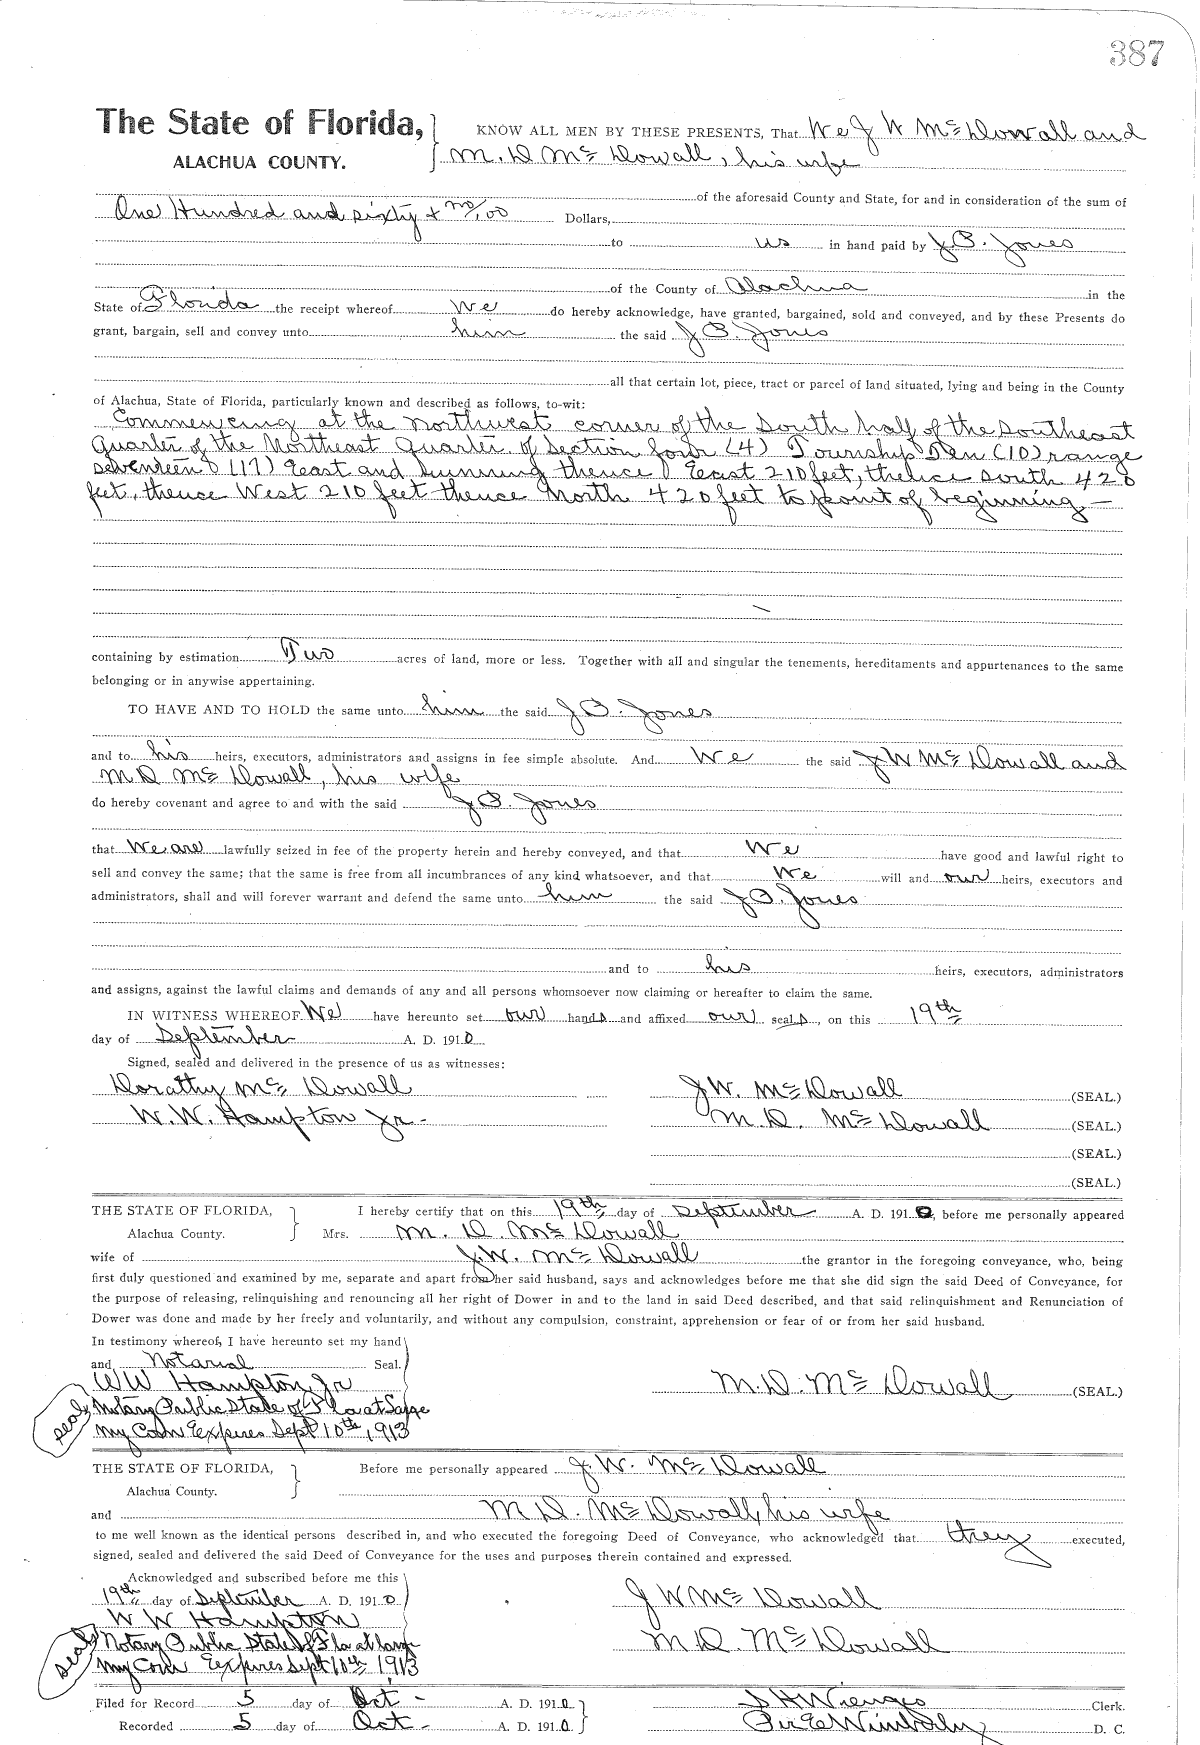 387
The State of Florida, KNOW ALL MEN BY THESE PRESENTS, That We J W McDowall and
ALACHUA COUNTY. M. D McDowall, his wife
of the aforesaid County and State, for and in consideration of the sum of
One Hundred and sixty + no/100 Dollars,
to us in hand paid by J B. Jones
of the County of Alachua in the
State of Florida the receipt whereof We do hereby acknowledge, have granted, bargained, sold and conveyed, and by these Presents do
grant, bargain, sell and convey unto him the said J B. Jones
all that certain lot, piece, tract or parcel of land situated, lying and being in the County
of Alachua, State of Florida, particularly known and described as follows, to-wit:
Commencing at the Northwest corner of the South half of the Southeast
Quarter of the Northeast Quarter of Section four (4) Township Ten (10) range
seventeen (17) East and running thence East 210 feet, thence south 420
feet, thence West 210 feet thence North 420 feet to point of beginning —
containing by estimation Two acres of land, more or less. Together with all and singular the tenements, hereditaments and appurtenances to the same
belonging or in anywise appertaining.
TO HAVE AND TO HOLD the same unto him the said J B. Jones
and to his heirs, executors, administrators and assigns in fee simple absolute. And We the said J W McDowall and
M D McDowall, his wife
do hereby covenant and agree to and with the said J B. Jones
that We are lawfully seized in fee of the property herein and hereby conveyed, and that We have good and lawful right to
sell and convey the same; that the same is free from all incumbrances of any kind whatsoever, and that We will and our heirs, executors and
administrators, shall and will forever warrant and defend the same unto him the said J B. Jones
and to his heirs, executors, administrators
and assigns, against the lawful claims and demands of any and all persons whomsoever now claiming or hereafter to claim the same.
IN WITNESS WHEREOF We have hereunto set our hands and affixed our seals, on this 19th
day of September A. D. 1910
Signed, sealed and delivered in the presence of us as witnesses:
Dorathy McDowall J W. McDowall (SEAL.)
W. W. Hampton Jr- M. D. McDowall (SEAL.)
(SEAL.)
(SEAL.)
THE STATE OF FLORIDA, I hereby certify that on this 19th day of September A. D. 1910, before me personally appeared
Alachua County. Mrs. M. D. McDowall
wife of J. W. McDowall the grantor in the foregoing conveyance, who, being
first duly questioned and examined by me, separate and apart from her said husband, says and acknowledges before me that she did sign the said Deed of Conveyance, for
the purpose of releasing, relinquishing and renouncing all her right of Dower in and to the land in said Deed described, and that said relinquishment and Renunciation of
Dower was done and made by her freely and voluntarily, and without any compulsion, constraint, apprehension or fear of or from her said husband.
In testimony whereof, I have hereunto set my hand
and Notarial Seal.
W W Hampton Jr M. D. McDowall (SEAL.)
seal Notary Public State of Fla at Large
My Com Expires Sept 10th, 1913
THE STATE OF FLORIDA, Before me personally appeared J. W. McDowall
Alachua County.
and M D. McDowall, his wife
to me well known as the identical persons described in, and who executed the foregoing Deed of Conveyance, who acknowledged that they executed,
signed, sealed and delivered the said Deed of Conveyance for the uses and purposes therein contained and expressed.
Acknowledged and subscribed before me this
19th day of September A. D. 1910 J W McDowall
W W Hampton
seal Notary Public State of Fla at large M D. McDowall
My Com Expires Sept 10th 1913
Filed for Record 5 day of Oct - A. D. 1910 S H Wienges Clerk.
Recorded 5 day of Oct - A. D. 1910 Wimberly D. C.